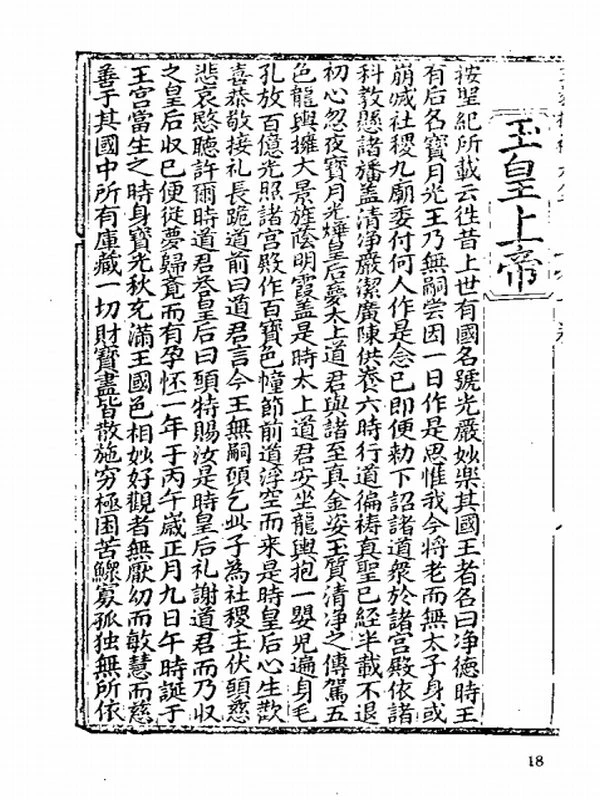 玉皇上帝
按聖紀所載云徃昔上世有國名號光嚴妙樂其國王者名曰净德時王
有后名寶月光王乃無嗣嘗因一日作是思惟我今将老而無太子身或
崩滅社稷九廟委付何人作是念已即便勑下詔諸道衆於諸宫殿依諸
科教懸諸旛盖清净嚴潔廣陳供養六時行道徧禱真聖已經半載不退
初心忽夜寶月光皇后夢太上道君與諸至真金姿玉質清净之儔駕五
色龍輿擁大景旌蔭明霞盖是時太上道君安坐龍輿抱一嬰児遍身毛
孔放百億光照諸宫殿作百寶色幢節前道浮空而来是時皇后心生歡
喜恭敬接礼長跪道前曰道君言今王無嗣願乞此子為社稷主伏願慈
悲哀愍聽許爾時道君荅皇后曰願特賜汝是時皇后礼謝道君而乃収
之皇后収已便從夢歸竟而有孕怀一年于丙午歲正月九日午時誕于
王宫當生之時身寶光充滿王國色相妙好觀者無厭幼而敏慧而慈
善于其國中所有庫藏一切財寶盡皆散施穷極困苦鰥寡孤独無所依
18